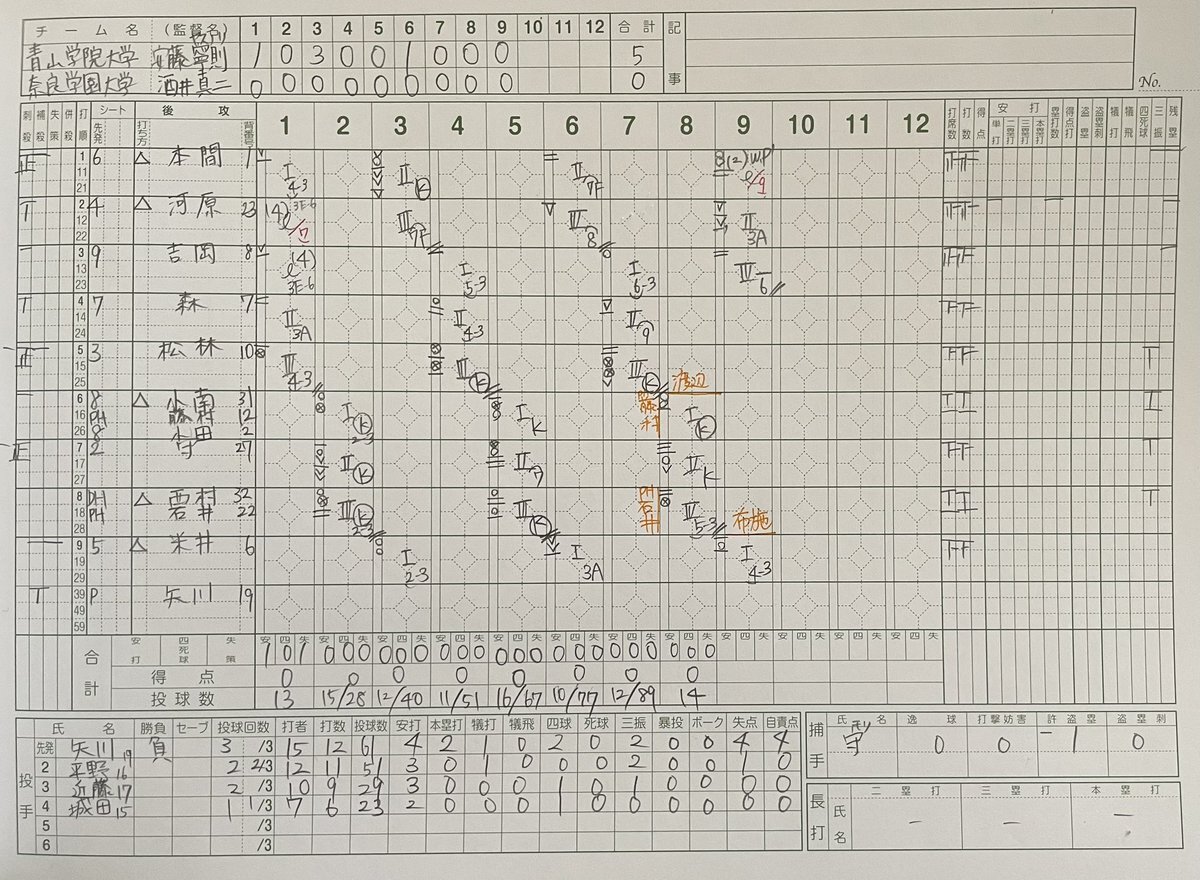 チーム名 (監督名) 1 2 3 4 5 6 7 8 9 10 11 12 合計 記事
青山学院大学 安藤寧則 1 0 3 0 0 1 0 0 0 5
奈良学園大学 酒井真二 0 0 0 0 0 0 0 0 0 0
No.
刺殺 補殺 失策 併殺 打順 シート 先発 打ち方 後攻 背番号 1 2 3 4 5 6 7 8 9 10 11 12 打席数 打数 得点 安打 単打 二塁打 三塁打 本塁打 塁打数 得点打 盗塁 盗塁刺 犠打 犠飛 四死球 三振 残塁
1 11 21 6 △ 本間 1 I 4-3 II K II 7F (2) WP
2 12 22 4 △ 河原 23 (4) 3E-6 III 7F III 8 II 3A
3 13 23 9 吉岡 8 (4) 3E-6 I 5-3 I 6-3 III 6
4 14 24 7 森 7 II 3A II 4-3 II 9
5 15 25 3 松林 10 III 4-3 III K III K 渡辺
6 16 26 8 △ 南 31 I K 2-3 I K I K
PH 藤村 12 PH 藤村
8 2
7 17 27 2 守 27 II K II 7 II K
8 18 28 DH △ 西村 32 III K 2-3 III K III 5-3 布施
PH 石井 22 PH 石井
9 19 29 5 △ 米井 6 I 2-3 I 3A I 4-3
39 49 59 P 矢川 19
合計 安打 四死球 失策 1 0 1 0 0 0 0 0 0 0 0 0 0 0 0 0 0 0 0 0 0 0 0 0
得点 0 0 0 0 0 0 0 0
投球数 13 15/28 12/40 11/51 16/67 10/77 12/89 14
投手 氏名 勝負 セーブ 投球回数 打者 打数 投球数 安打 本塁打 犠打 犠飛 四球 死球 三振 暴投 ボーク 失点 自責点
先発 矢川 19 負 3 /3 15 12 61 4 2 1 0 2 0 2 0 0 4 4
2 平野 16 2 2/3 12 11 51 3 0 1 0 0 0 2 0 0 1 0
3 近藤 17 2 /3 10 9 29 3 0 0 0 1 0 1 0 0 0 0
4 城田 15 1 1/3 7 6 23 2 0 0 0 1 0 0 0 0 0 0
5 /3
6 /3
捕手 氏名 逸球 打撃妨害 許盗塁 盗塁刺
守 0 0 1 0
長打 氏名 二塁打 三塁打 本塁打
－ － －